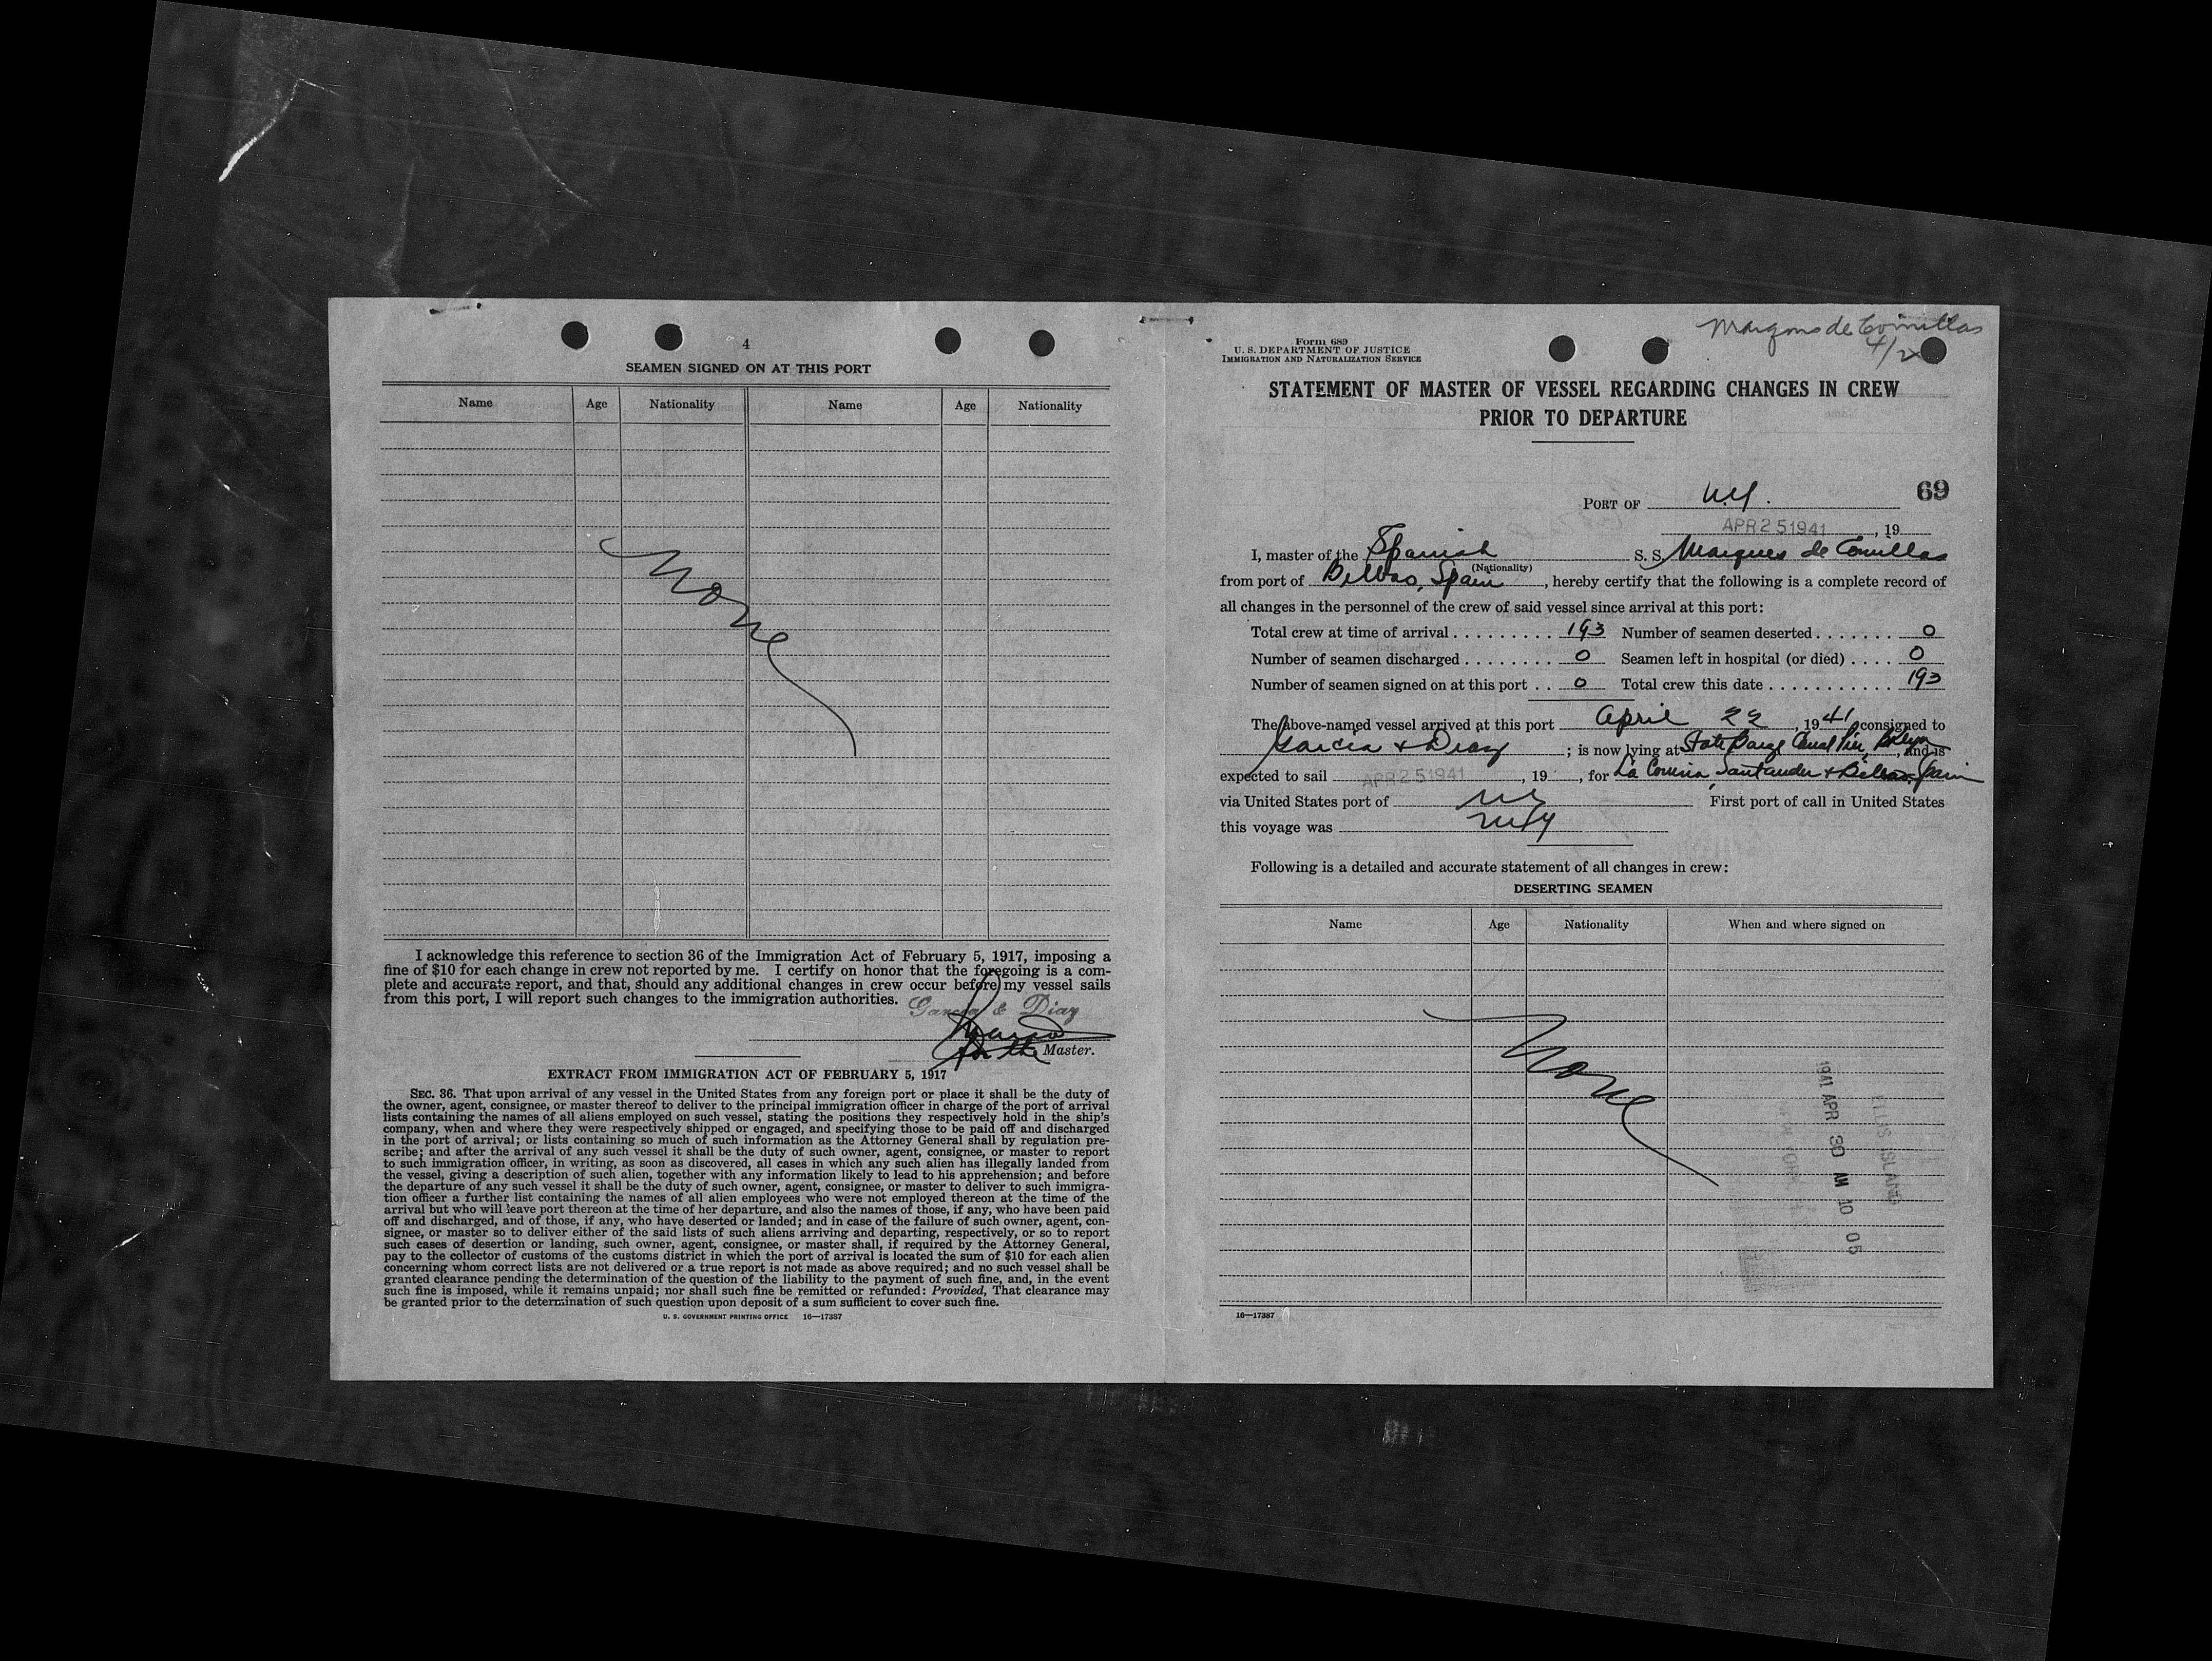 4
SEAMEN SIGNED ON AT THIS PORT
Name Age Nationality Name Age Nationality
None
I acknowledge this reference to section 36 of the Immigration Act of February 5, 1917, imposing a
fine of $10 for each change in crew not reported by me. I certify on honor that the foregoing is a com-
plete and accurate report, and that, should any additional changes in crew occur before my vessel sails
from this port, I will report such changes to the immigration authorities.
Garcia & Diaz
for the Master.
EXTRACT FROM IMMIGRATION ACT OF FEBRUARY 5, 1917
SEC. 36. That upon arrival of any vessel in the United States from any foreign port or place it shall be the duty of
the owner, agent, consignee, or master thereof to deliver to the principal immigration officer in charge of the port of arrival
lists containing the names of all aliens employed on such vessel, stating the positions they respectively hold in the ship's
company, when and where they were respectively shipped or engaged, and specifying those to be paid off and discharged
in the port of arrival; or lists containing so much of such information as the Attorney General shall by regulation pre-
scribe; and after the arrival of any such vessel it shall be the duty of such owner, agent, consignee, or master to report
to such immigration officer, in writing, as soon as discovered, all cases in which any such alien has illegally landed from
the vessel, giving a description of such alien, together with any information likely to lead to his apprehension; and before
the departure of any such vessel it shall be the duty of such owner, agent, consignee, or master to deliver to such immigra-
tion officer a further list containing the names of all alien employees who were not employed thereon at the time of the
arrival but who will leave port thereon at the time of her departure, and also the names of those, if any, who have been paid
off and discharged, and of those, if any, who have deserted or landed; and in case of the failure of such owner, agent, con-
signee, or master so to deliver either of the said lists of such aliens arriving and departing, respectively, or so to report
such cases of desertion or landing, such owner, agent, consignee, or master shall, if required by the Attorney General,
pay to the collector of customs of the customs district in which the port of arrival is located the sum of $10 for each alien
concerning whom correct lists are not delivered or a true report is not made as above required; and no such vessel shall be
granted clearance pending the determination of the question of the liability to the payment of such fine, and, in the event
such fine is imposed, while it remains unpaid; nor shall such fine be remitted or refunded: Provided, That clearance may
be granted prior to the determination of such question upon deposit of a sum sufficient to cover such fine.
U. S. GOVERNMENT PRINTING OFFICE 16—17387
Marques de Comillas
Form 689
U. S. DEPARTMENT OF JUSTICE
IMMIGRATION AND NATURALIZATION SERVICE
STATEMENT OF MASTER OF VESSEL REGARDING CHANGES IN CREW
PRIOR TO DEPARTURE
PORT OF N.Y. 69
APR 25 1941, 19
I, master of the Spanish S. S. Marques de Comillas
(Nationality)
from port of Bilbao, Spain, hereby certify that the following is a complete record of
all changes in the personnel of the crew of said vessel since arrival at this port:
Total crew at time of arrival 193 Number of seamen deserted 0
Number of seamen discharged 0 Seamen left in hospital (or died) 0
Number of seamen signed on at this port 0 Total crew this date 193
The above-named vessel arrived at this port April 22, 1941, consigned to
Garcia & Diaz; is now lying at State Barge Canal Pier, Bklyn, and is
expected to sail APR 25 1941, 19, for La Coruña, Santander & Bilbao, Spain
via United States port of NY First port of call in United States
this voyage was NY
Following is a detailed and accurate statement of all changes in crew:
DESERTING SEAMEN
Name Age Nationality When and where signed on
None
ELLIS ISLAND
1941 APR 30 AM 10 05
16—17387